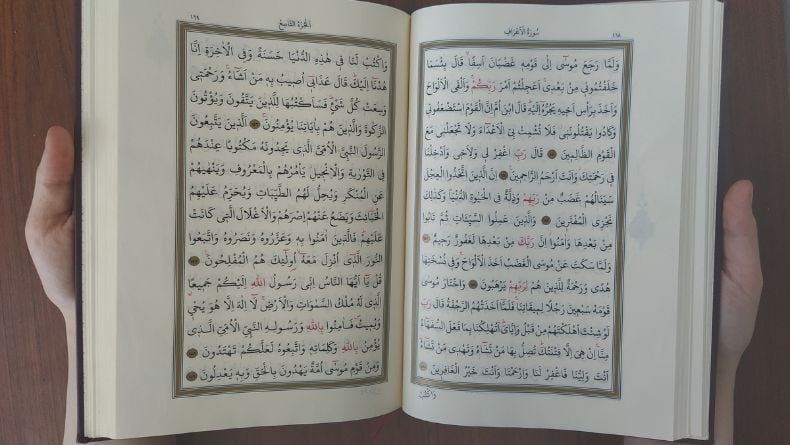 سُورَةُ الْاَعْرَافِ
١٦٨
وَلَمَّا رَجَعَ مُوسٰٓى اِلٰى قَوْمِه۪ غَضْبَانَ اَسِفًاۙ قَالَ بِئْسَمَا
خَلَفْتُمُون۪ي مِنْ بَعْد۪يۚ اَعَجِلْتُمْ اَمْرَ رَبِّكُمْۚ وَاَلْقَى الْاَلْوَاحَ
وَاَخَذَ بِرَأْسِ اَخ۪يهِ يَجُرُّهُٓ اِلَيْهِۜ قَالَ ابْنَ اُمَّ اِنَّ الْقَوْمَ اسْتَضْعَفُون۪ي
وَكَادُوا يَقْتُلُونَن۪يۘ فَلَا تُشْمِتْ بِيَ الْاَعْدَٓاءَ وَلَا تَجْعَلْن۪ي مَعَ
الْقَوْمِ الظَّالِم۪ينَ ١٥٠ قَالَ رَبِّ اغْفِرْ ل۪ي وَلِاَخ۪ي وَاَدْخِلْنَا
ف۪ي رَحْمَتِكَۘ وَاَنْتَ اَرْحَمُ الرَّاحِم۪ينَ۟ ١٥١ اِنَّ الَّذ۪ينَ اتَّخَذُوا الْعِجْلَ
سَيَنَالُهُمْ غَضَبٌ مِنْ رَبِّهِمْ وَذِلَّةٌ فِي الْحَيٰوةِ الدُّنْيَاۜ وَكَذٰلِكَ
نَجْزِي الْمُفْتَر۪ينَ ١٥٢ وَالَّذ۪ينَ عَمِلُوا السَّيِّـَٔاتِ ثُمَّ تَابُوا
مِنْ بَعْدِهَا وَاٰمَنُواۘ اِنَّ رَبَّكَ مِنْ بَعْدِهَا لَغَفُورٌ رَح۪يمٌ ١٥٣
وَلَمَّا سَكَتَ عَنْ مُوسَى الْغَضَبُ اَخَذَ الْاَلْوَاحَۚ وَف۪ي نُسْخَتِهَا
هُدًى وَرَحْمَةٌ لِلَّذ۪ينَ هُمْ لِرَبِّهِمْ يَرْهَبُونَ ١٥٤ وَاخْتَارَ مُوسٰى
قَوْمَهُ سَبْع۪ينَ رَجُلًا لِم۪يقَاتِنَاۚ فَلَمَّٓا اَخَذَتْهُمُ الرَّجْفَةُ قَالَ رَبِّ
لَوْ شِئْتَ اَهْلَكْتَهُمْ مِنْ قَبْلُ وَاِيَّايَۜ اَتُهْلِكُنَا بِمَا فَعَلَ السُّفَهَٓاءُ
مِنَّاۚ اِنْ هِيَ اِلَّا فِتْنَتُكَۜ تُضِلُّ بِهَا مَنْ تَشَٓاءُ وَتَهْد۪ي مَنْ تَشَٓاءُۜ
اَنْتَ وَلِيُّنَا فَاغْفِرْ لَنَا وَارْحَمْنَا وَاَنْتَ خَيْرُ الْغَافِر۪ينَ ١٥٥
وَاكْتُبْ
١٦٩
اَلْجُزْءُ التَّاسِعُ
وَاكْتُبْ لَنَا ف۪ي هٰذِهِ الدُّنْيَا حَسَنَةً وَفِي الْاٰخِرَةِ اِنَّا
هُدْنَٓا اِلَيْكَۜ قَالَ عَذَاب۪ٓي اُص۪يبُ بِه۪ مَنْ اَشَٓاءُۚ وَرَحْمَت۪ي
وَسِعَتْ كُلَّ شَيْءٍۜ فَسَاَكْتُبُهَا لِلَّذ۪ينَ يَتَّقُونَ وَيُؤْتُونَ
الزَّكٰوةَ وَالَّذ۪ينَ هُمْ بِاٰيَاتِنَا يُؤْمِنُونَۚ ١٥٦ اَلَّذ۪ينَ يَتَّبِعُونَ
الرَّسُولَ النَّبِيَّ الْاُمِّيَّ الَّذ۪ي يَجِدُونَهُ مَكْتُوبًا عِنْدَهُمْ
فِي التَّوْرٰيةِ وَالْاِنْج۪يلِ يَأْمُرُهُمْ بِالْمَعْرُوفِ وَيَنْهٰيهُمْ
عَنِ الْمُنْكَرِ وَيُحِلُّ لَهُمُ الطَّيِّبَاتِ وَيُحَرِّمُ عَلَيْهِمُ
الْخَبَٓائِثَ وَيَضَعُ عَنْهُمْ اِصْرَهُمْ وَالْاَغْلَالَ الَّت۪ي كَانَتْ
عَلَيْهِمْۜ فَالَّذ۪ينَ اٰمَنُوا بِه۪ وَعَزَّرُوهُ وَنَصَرُوهُ وَاتَّبَعُوا
النُّورَ الَّذ۪ٓي اُنْزِلَ مَعَهُٓۙ اُو۬لٰٓئِكَ هُمُ الْمُفْلِحُونَ۟ ١٥٧
قُلْ يَٓا اَيُّهَا النَّاسُ اِنّ۪ي رَسُولُ اللّٰهِ اِلَيْكُمْ جَم۪يعًاۨ
الَّذ۪ي لَهُ مُلْكُ السَّمٰوَاتِ وَالْاَرْضِۚ لَٓا اِلٰهَ اِلَّا هُوَ يُحْي۪
وَيُم۪يتُۖ فَاٰمِنُوا بِاللّٰهِ وَرَسُولِهِ النَّبِيِّ الْاُمِّيِّ الَّذ۪ي
يُؤْمِنُ بِاللّٰهِ وَكَلِمَاتِه۪ وَاتَّبِعُوهُ لَعَلَّكُمْ تَهْتَدُونَ ١٥٨
وَمِنْ قَوْمِ مُوسٰٓى اُمَّةٌ يَهْدُونَ بِالْحَقِّ وَبِه۪ يَعْدِلُونَ ١٥٩